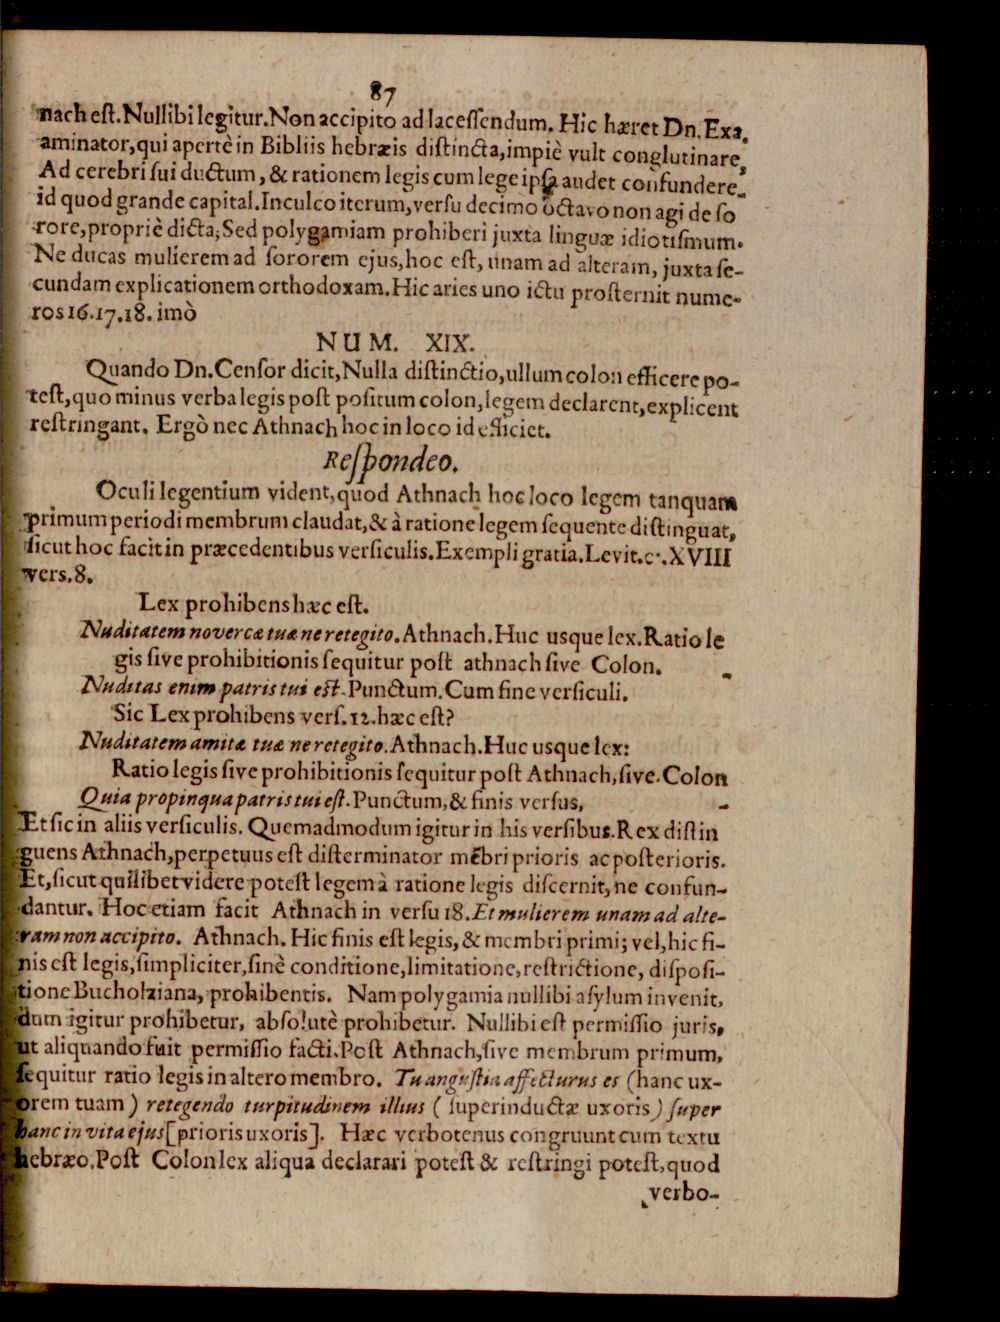 87
nach est. Nullibi legitur. Non accipito ad lacessendum. Hic hæret Dn. Exa-
aminator, qui apertè in Bibliis hebræis distincta, impiè vult conglutinare,
Ad cerebri sui ductum, & rationem legis cum lege ipsa audet confundere,
id quod grande capital. Inculco iterum, versu decimo octavo non agi de so-
rore, propriè dicta; Sed polygamiam prohiberi juxta linguæ idiotismum.
Ne ducas mulierem ad sororem ejus, hoc est, unam ad alteram, juxta se-
cundam explicationem orthodoxam. Hic aries uno ictu prosternit nume-
ros 16. 17. 18. imò
NUM. XIX.
Quando Dn. Censor dicit, Nulla distinctio, ullum colon efficere po-
test, quo minus verba legis post positum colon, legem declarent, explicent
restringant. Ergò nec Athnach hoc in loco id efficiet.
Respondeo.
Oculi legentium vident, quod Athnach hoc loco legem tanquam
primum periodi membrum claudat, & à ratione legem sequente distinguat,
sicut hoc facit in præcedentibus versiculis. Exempli gratia. Levit. c. XVIII
vers. 8.
Lex prohibens hæc est.
Nuditatem novercæ tuæ ne retegito. Athnach. Huc usque lex. Ratio le
gis sive prohibitionis sequitur post athnach sive Colon. -
Nuditas enim patris tui est. Punctum. Cum fine versiculi.
Sic Lex prohibens vers. 12. hæc est?
Nuditatem amitæ tuæ ne retegito. Athnach. Huc usque lex:
Ratio legis sive prohibitionis sequitur post Athnach, sive. Colon
Quia propinqua patris tui est. Punctum, & finis versus, -
Et sic in aliis versiculis. Quemadmodum igitur in his versibus. Rex distin
guens Athnach, perpetuus est disterminator mēbri prioris ac posterioris.
Et, sicut quilibet videre potest legem à ratione legis discernit, ne confun-
dantur. Hoc etiam facit Athnach in versu 18. Et mulierem unam ad alte-
ram non accipito. Athnach. Hic finis est legis, & membri primi; vel, hic fi-
nis est legis, simpliciter, sinè conditione, limitatione, restrictione, disposi-
tione Bucholziana, prohibentis. Nam polygamia nullibi asylum invenit,
dum igitur prohibetur, absolutè prohibetur. Nullibi est permissio juris,
ut aliquando fuit permissio facti. Post Athnach, sive membrum primum,
sequitur ratio legis in altero membro. Tu angustia affecturus es (hanc ux-
orem tuam) retegendo turpitudinem illius (superinductæ uxoris) super
hanc in vita ejus [prioris uxoris]. Hæc verbotenus congruunt cum textu
hebræo. Post Colon lex aliqua declarari potest & restringi potest, quod
verbo-